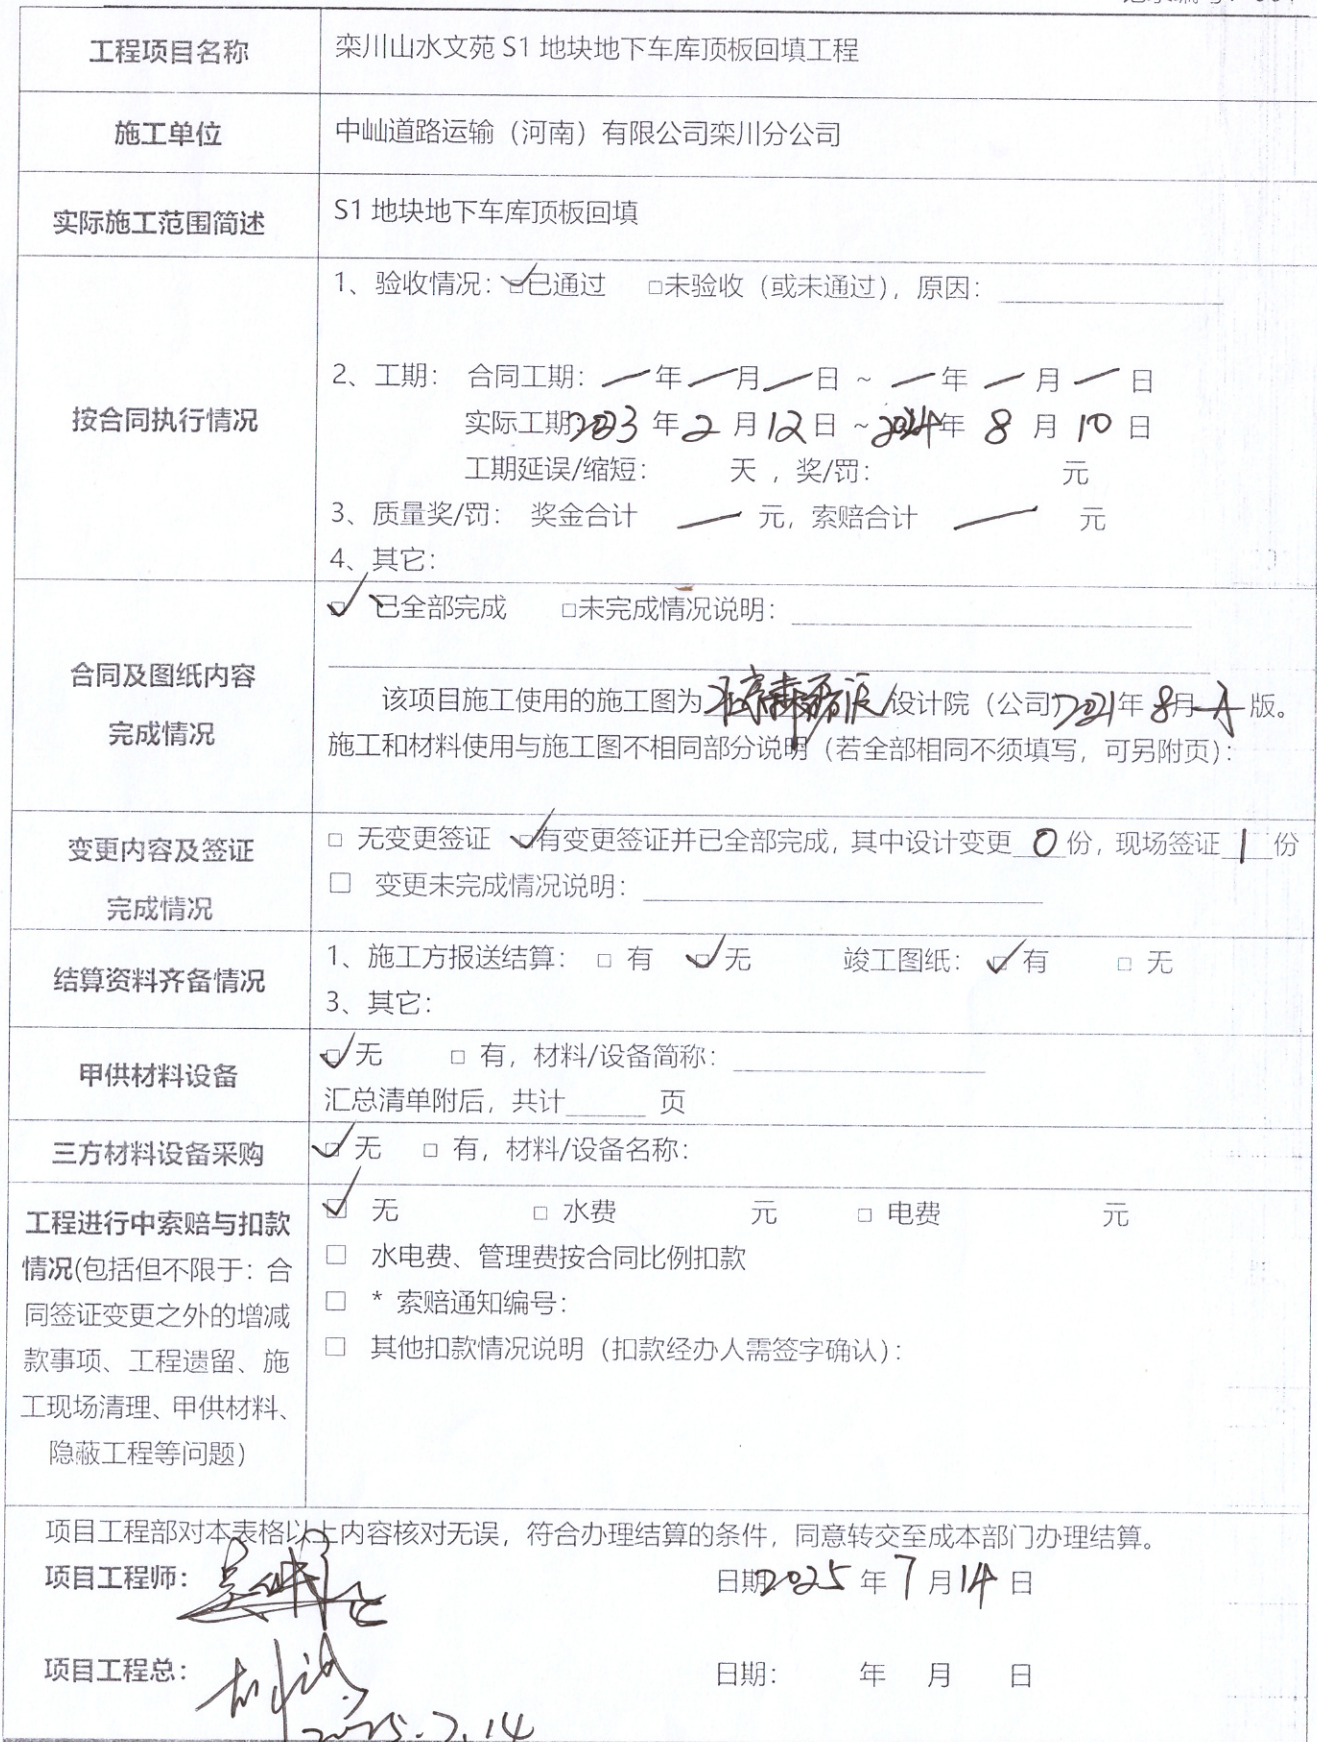 工程项目名称
栾川山水文苑 S1 地块地下车库顶板回填工程
施工单位
中屾道路运输（河南）有限公司栾川分公司
实际施工范围简述
S1 地块地下车库顶板回填
按合同执行情况
1、验收情况：☑已通过 □未验收（或未通过），原因：
2、工期： 合同工期：一年一月一日 ~ 一年一月一日
实际工期2023年2月12日 ~2024年8月10日
工期延误/缩短： 天 ，奖/罚： 元
3、质量奖/罚： 奖金合计 — 元，索赔合计 — 元
4、其它：
合同及图纸内容
完成情况
☑ 已全部完成 □未完成情况说明：
该项目施工使用的施工图为 设计院（公司）2021年8月 版。
施工和材料使用与施工图不相同部分说明（若全部相同不须填写，可另附页）：
变更内容及签证
完成情况
□ 无变更签证 ☑有变更签证并已全部完成，其中设计变更 0 份，现场签证 1 份
□ 变更未完成情况说明：
结算资料齐备情况
1、施工方报送结算： □ 有 ☑无 竣工图纸：☑有 □ 无
3、其它：
甲供材料设备
☑无 □ 有，材料/设备简称：
汇总清单附后，共计 页
三方材料设备采购
☑无 □ 有，材料/设备名称：
工程进行中索赔与扣款
情况(包括但不限于：合
同签证变更之外的增减
款事项、工程遗留、施
工现场清理、甲供材料、
隐蔽工程等问题）
☑ 无 □ 水费 元 □ 电费 元
□ 水电费、管理费按合同比例扣款
□ * 索赔通知编号：
□ 其他扣款情况说明（扣款经办人需签字确认）：
项目工程部对本表格以上内容核对无误，符合办理结算的条件，同意转交至成本部门办理结算。
项目工程师： 日期2025年7月14日
项目工程总： 日期： 年 月 日
2025.7.14